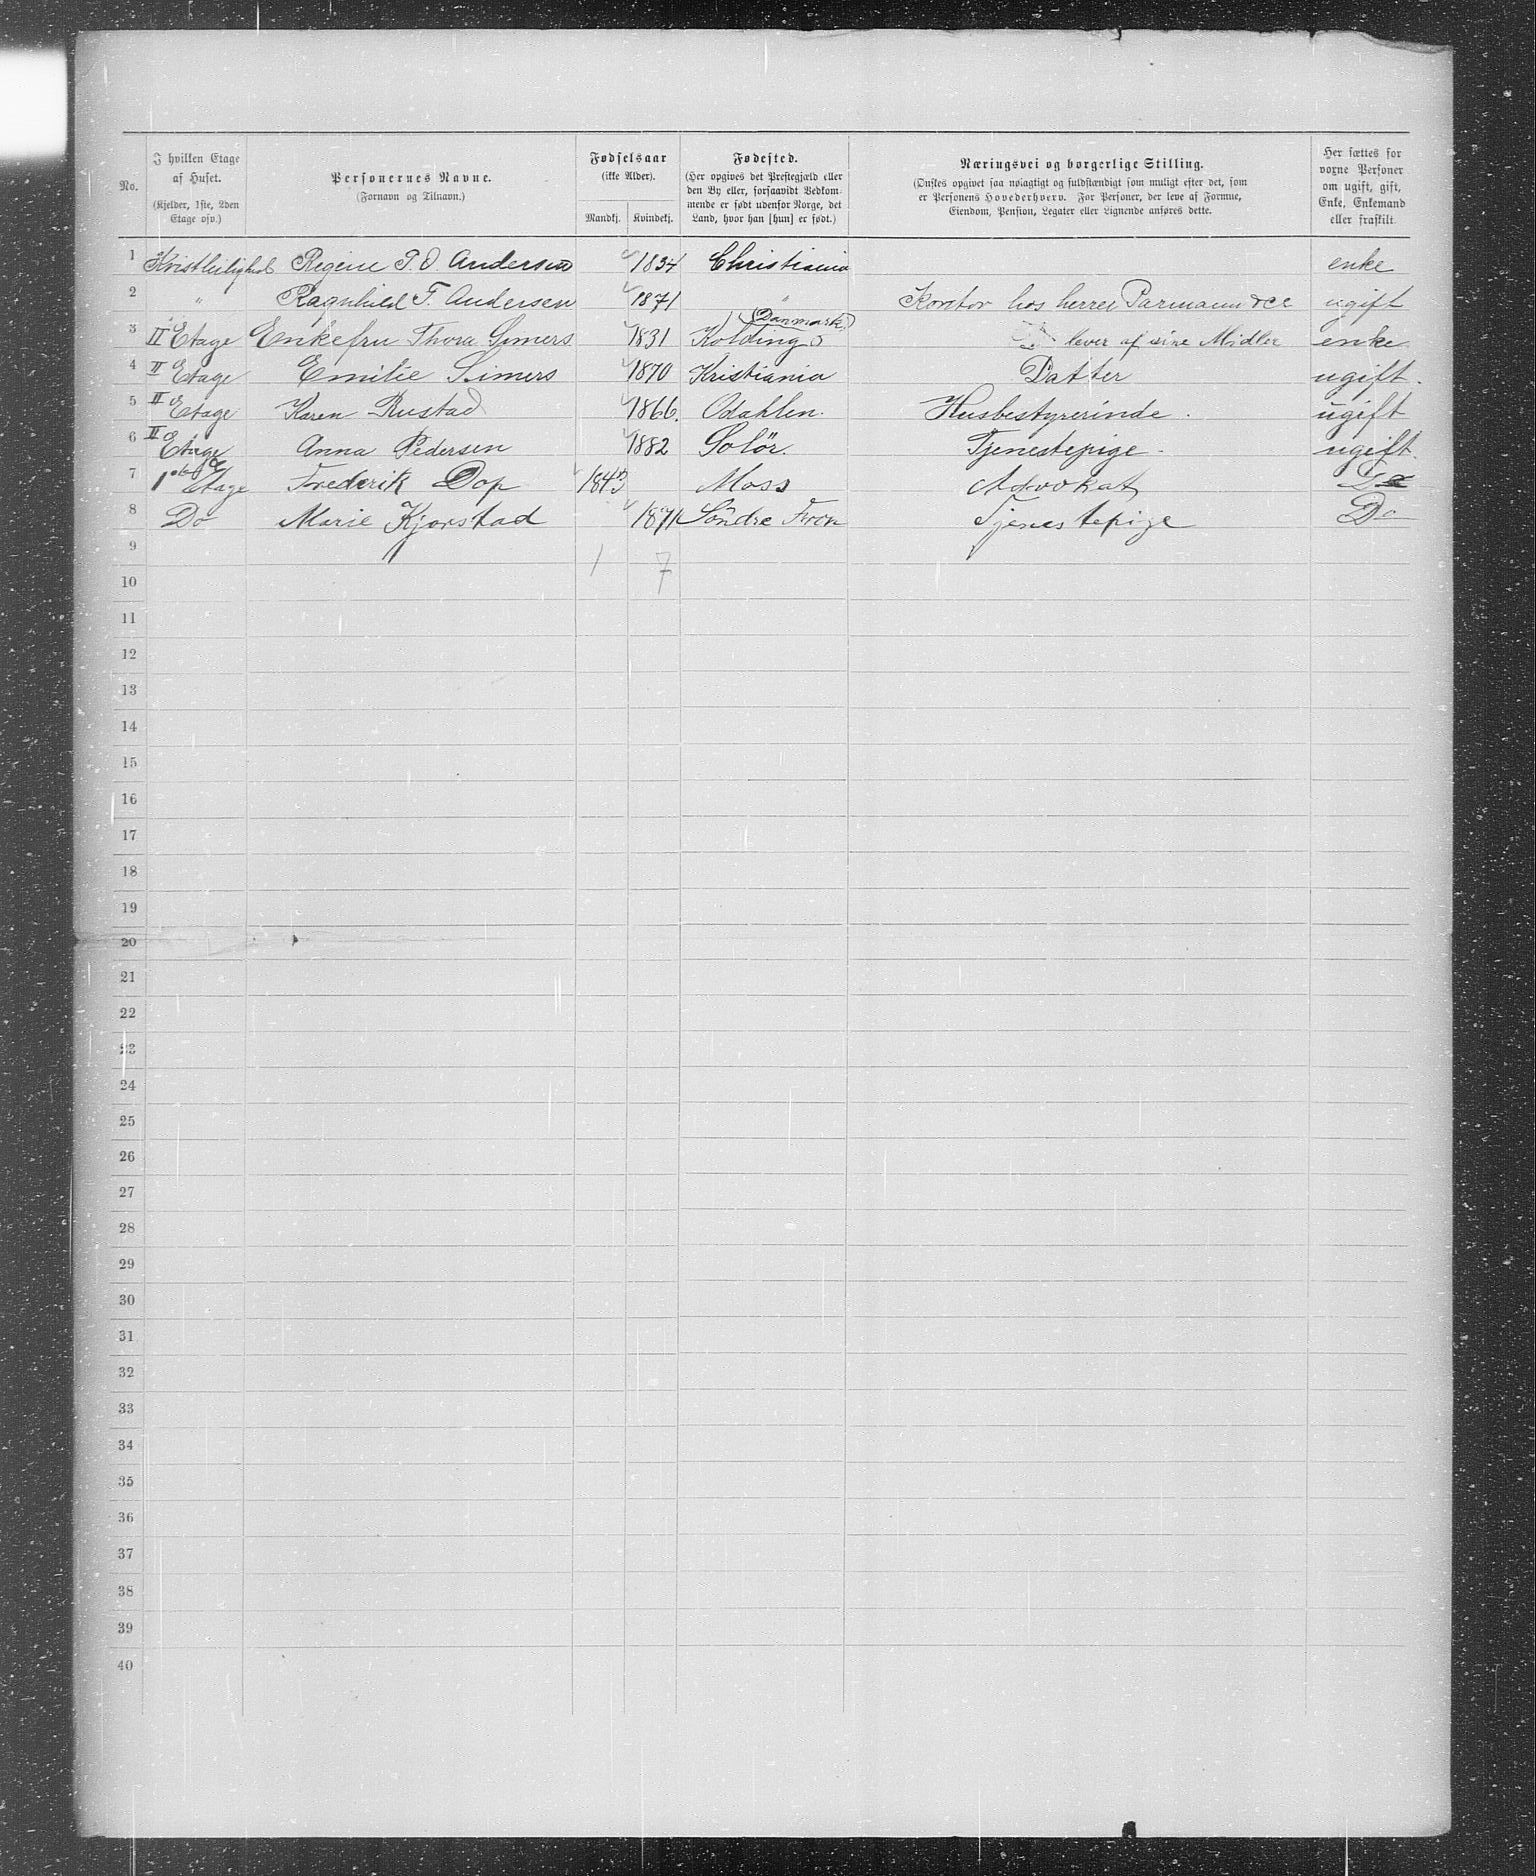 No.
I hvilken Etage af Huset.
(Kjelder, 1ste, 2den Etage osv.)
Personernes Navne.
(Fornavn og Tilnavn.)
Fødselsaar
(ikke Alder).
Mandkj. Kvindekj.
Fødested.
(Her opgives det Prestegjæld eller den By eller, forsaavidt Vedkommende er født udenfor Norge, det Land, hvor han [hun] er født.)
Næringsvei og borgerlige Stilling.
(Ønskes opgivet saa nøiagtigt og fuldstændigt som muligt efter det, som er Personens Hovederhverv. For Personer, der leve af Formue, Eiendom, Pension, Legater eller Lignende anføres dette.
Her sættes for voxne Personer om ugift, gift, Enke, Enkemand eller fraskilt.
1 Kvistleilighed Regine P. O. Andersen 1834 Christiania enke
2 " Ragnhild F. Andersen 1871 " Kontor hos herrer Parmann & Co ugift
3 II Etage Enkefru Thora Simers 1831 Kolding (Danmark) lever af sine Midler enke
4 II Etage Emilie Simers 1870 Kristiania Datter ugift.
5 II Etage Karen Rustad 1866. Odahlen. Husbestyrerinde. ugift
6 II Etage Anna Pedersen 1882 Solör. Tjenestepige. ugift.
7 1ste Etage Frederik Dop 1843 Moss Advokat Do
8 Do Marie Kjorstad 1871 Söndre Fron Tjenestepige Do
9 1 7
10
11
12
13
14
15
16
17
18
19
20
21
22
23
24
25
26
27
28
29
30
31
32
33
34
35
36
37
38
39
40